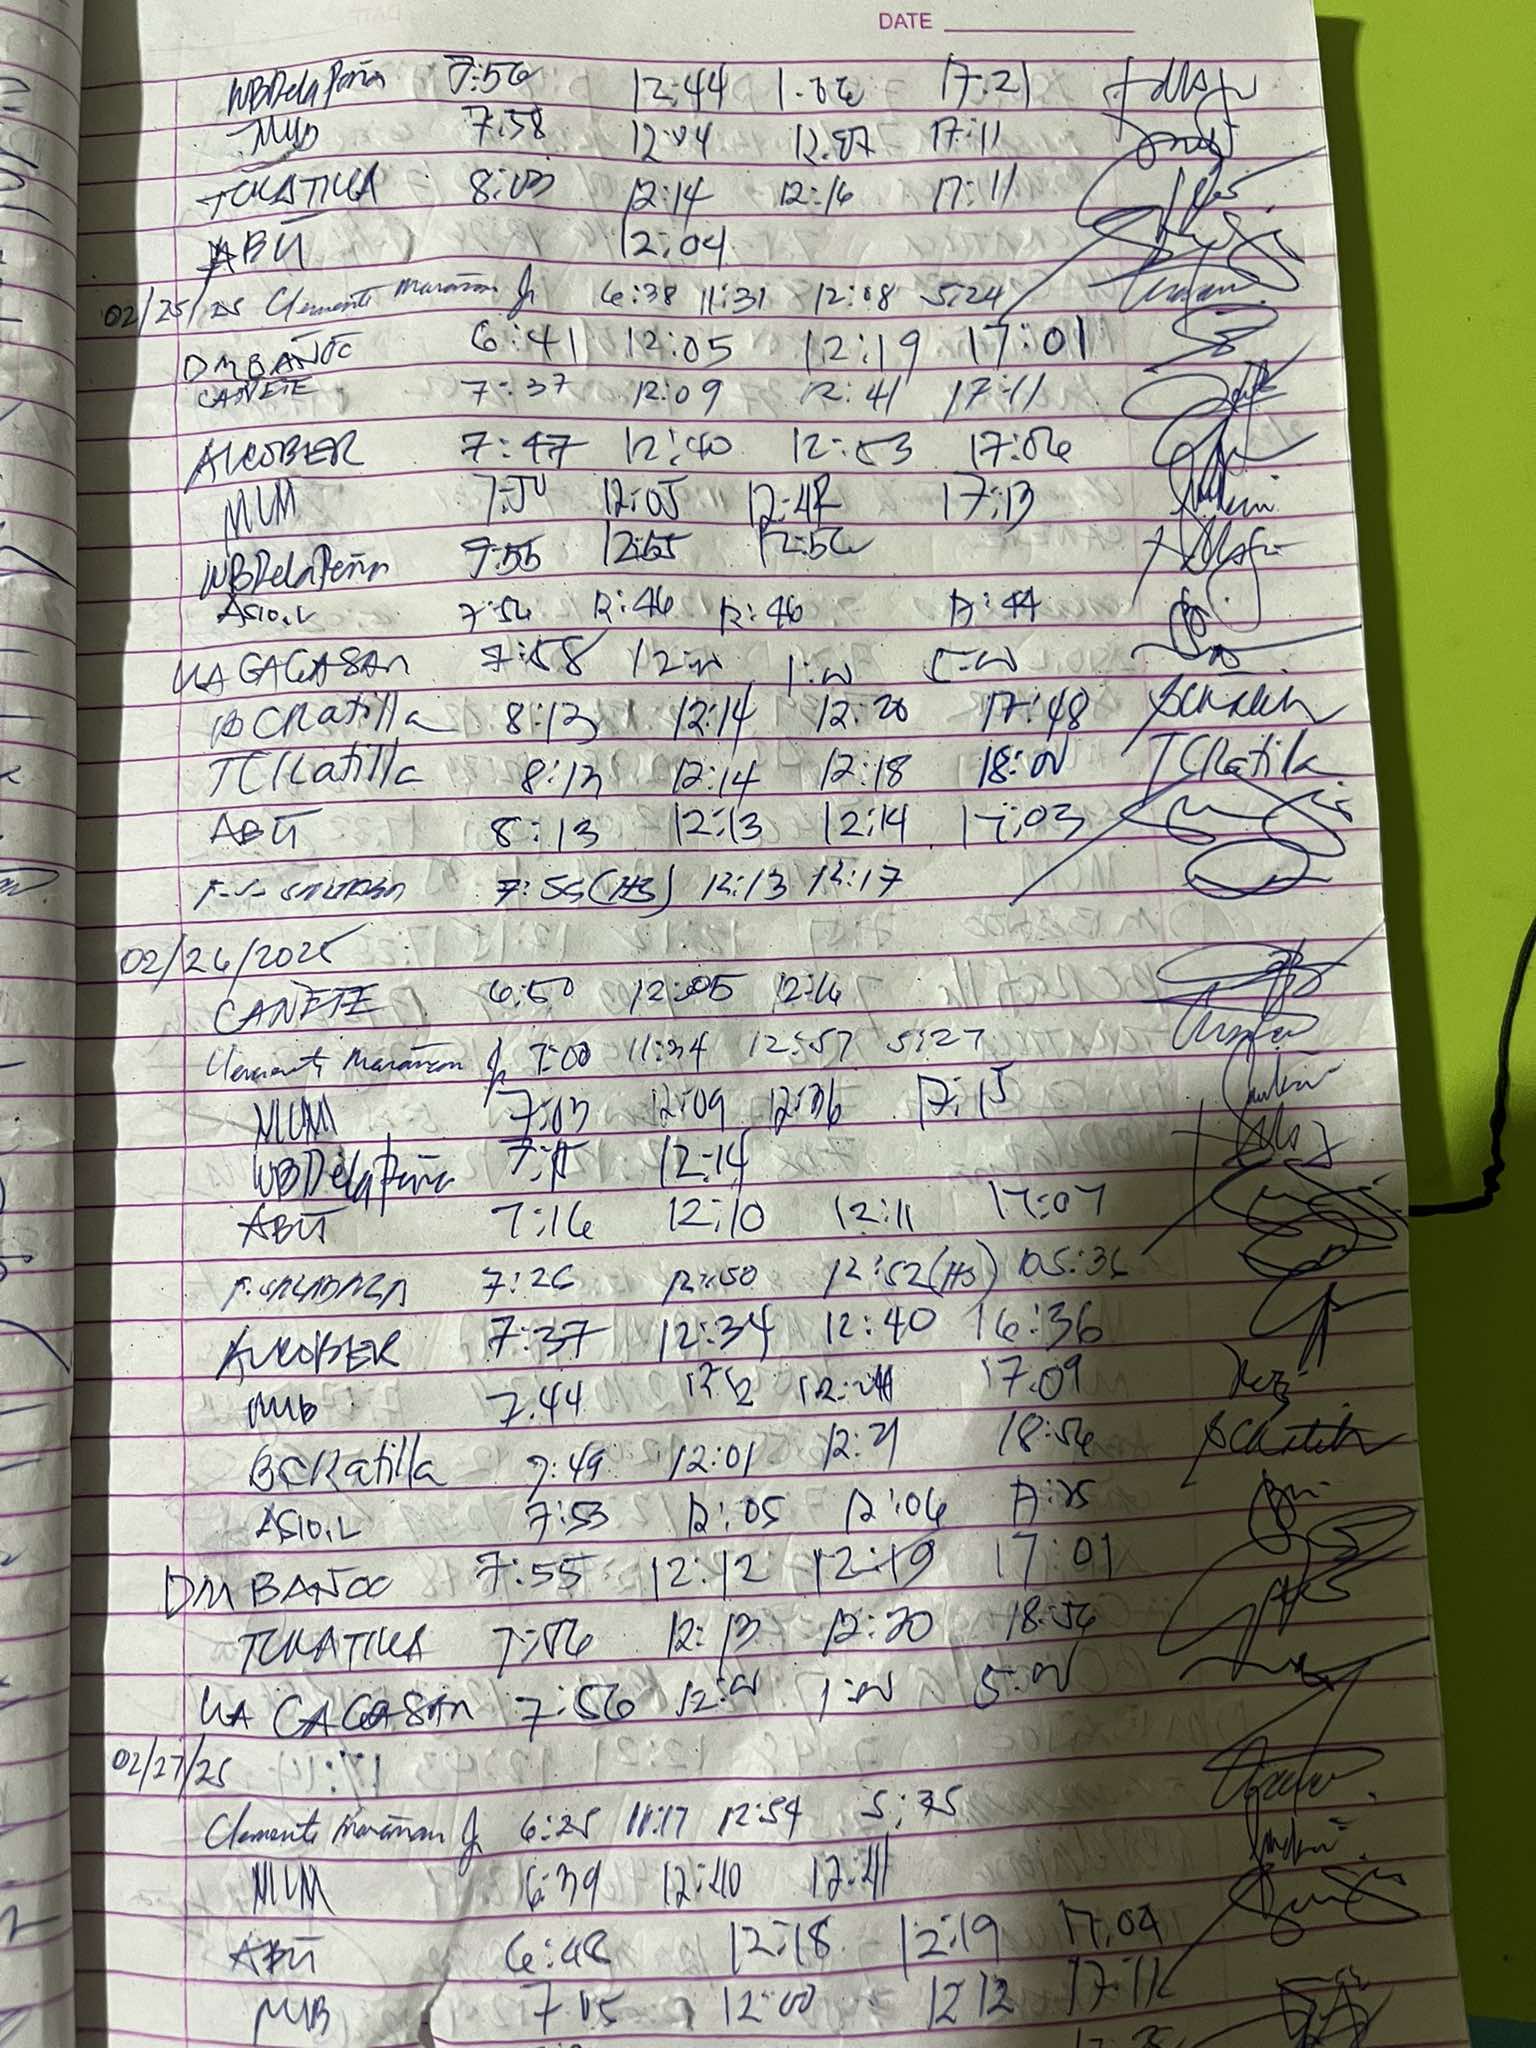 DATE
WBDelaPeña 7:56 12:44 1:06 17:21
MUB 7:58 12:04 12:07 17:11
TCRATILLA 8:03 12:14 12:16 17:11
ABU 12:04
02/25/25 Clemente Marañon Jr 6:38 11:31 12:08 5:24
DMBAÑOC 6:41 12:05 12:19 17:01
CAÑETE 7:37 12:09 12:41 17:11
ALCOBER 7:47 12:40 12:53 17:06
MUM 7:50 12:05 12:42 17:13
WBDelaPeña 7:55 12:55 12:56
Asio, L 7:56 12:46 12:46 17:44
CAGASAN 7:58 12:00 1:00 5:00
BCRatilla 8:13 12:14 12:20 17:48 BCRatilla
TCRatilla 8:13 12:14 12:18 18:00 TCRatilla
ABU 8:13 12:13 12:14 17:03
7:55 (HS) 12:13 12:17
02/26/2025
CAÑETE 6:50 12:05 12:16
Clemente Marañon Jr 7:00 11:34 12:57 5:27
MUM 7:03 12:09 12:36 17:15
WBDelaPeña 7:15 12:14
ABU 7:16 12:10 12:11 17:07
7:26 12:50 12:52 (HS) 05:36
ALCOBER 7:37 12:34 12:40 16:36
MUB 7:44 17:09
BCRatilla 7:49 12:01 12:21 18:56 BCRatilla
Asio, L 7:53 12:05 12:06 17:25
DMBAÑOC 7:55 12:12 12:19 17:01
TCRATILLA 7:56 12:13 12:20 18:56
CAGASAN 7:56 12:00 1:00 5:00
02/27/25
Clemente Marañon Jr 6:25 11:17 12:54 5:35
MUM 6:39 12:40 12:41
ABU 6:48 12:18 12:19 17:04
MUB 7:05 12:00 12:12 17:12